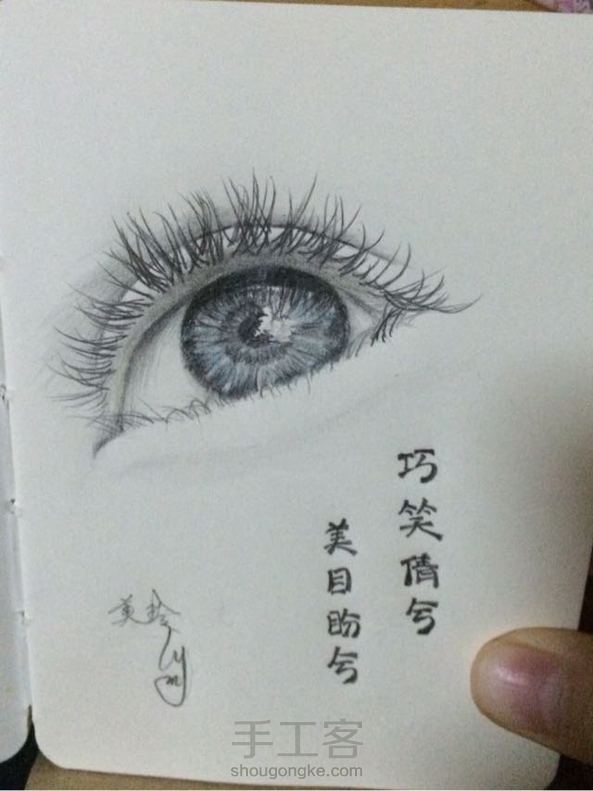 巧笑倩兮
美目盼兮
手工客
shougongke.com